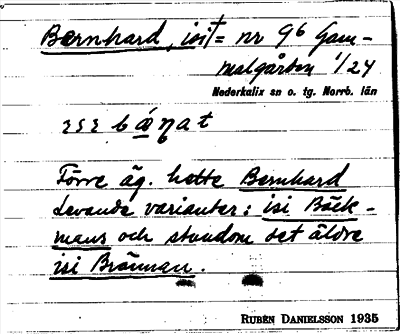 Bernhard, isi† = nr 9⁶ Gam-
malgården 1/24
Nederkalix sn o. tg. Norrb. län
Förre äg. hette Bernhard
Levande varianter: isi Bäck-
mans och stundom det äldre
isi Brännan.
RUBEN DANIELSSON 1935